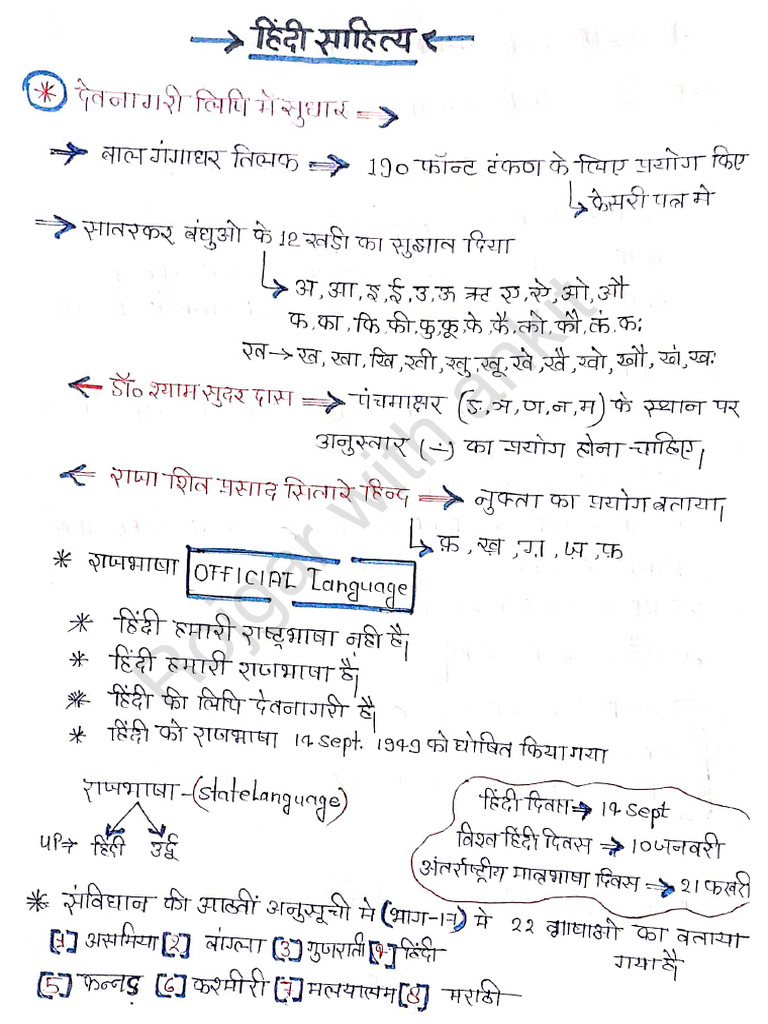 हिंदी साहित्य
* देवनागरी लिपि मे सुधार
बाल गंगाधर तिलक → 190 फॉन्ट टंकण के लिए प्रयोग किए
केसरी पत्र मे
सावरकर बंधुओ के 12 खड़ी का सुझाव दिया
अ, आ, इ, ई, उ, ऊ ऋ ए, ऐ, ओ, औ
क, का, कि, की, कु, कू, के, कै, को, कौ, कं, कः
ख → ख, खा, खि, खी, खु, खू, खे, खै, खो, खौ, खं, खः
डॉ० श्याम सुदर दास → पंचमाक्षर (ङ, ञ, ण, न, म) के स्थान पर
अनुस्वार (∸) का प्रयोग होना चाहिए।
राजा शिव प्रसाद सितारे हिन्द → नुक्ता का प्रयोग बताया।
क़, ख़, ग़, ज़, फ़
* राजभाषा OFFICIAL Language
* हिंदी हमारी राष्ट्रभाषा नही है।
* हिंदी हमारी राजभाषा है।
* हिंदी की लिपि देवनागरी है।
* हिंदी को राजभाषा 14 Sept. 1949 को घोषित किया गया
राजभाषा - (State Language)
UP → हिंदी उर्दू
हिंदी दिवस → 14 Sept
विश्व हिंदी दिवस → 10 जनवरी
अंतर्राष्ट्रीय मातृभाषा दिवस → 21 फरवरी
* संविधान की आठवीं अनुसूची मे (भाग-17) मे 22 भाषाओ का बताया
गया है।
[1] असमिया [2] बांग्ला [3] गुजराती [4] हिंदी
[5] कन्नड़ [6] कश्मीरी [7] मलयालम [8] मराठी
Rojgar with ankit